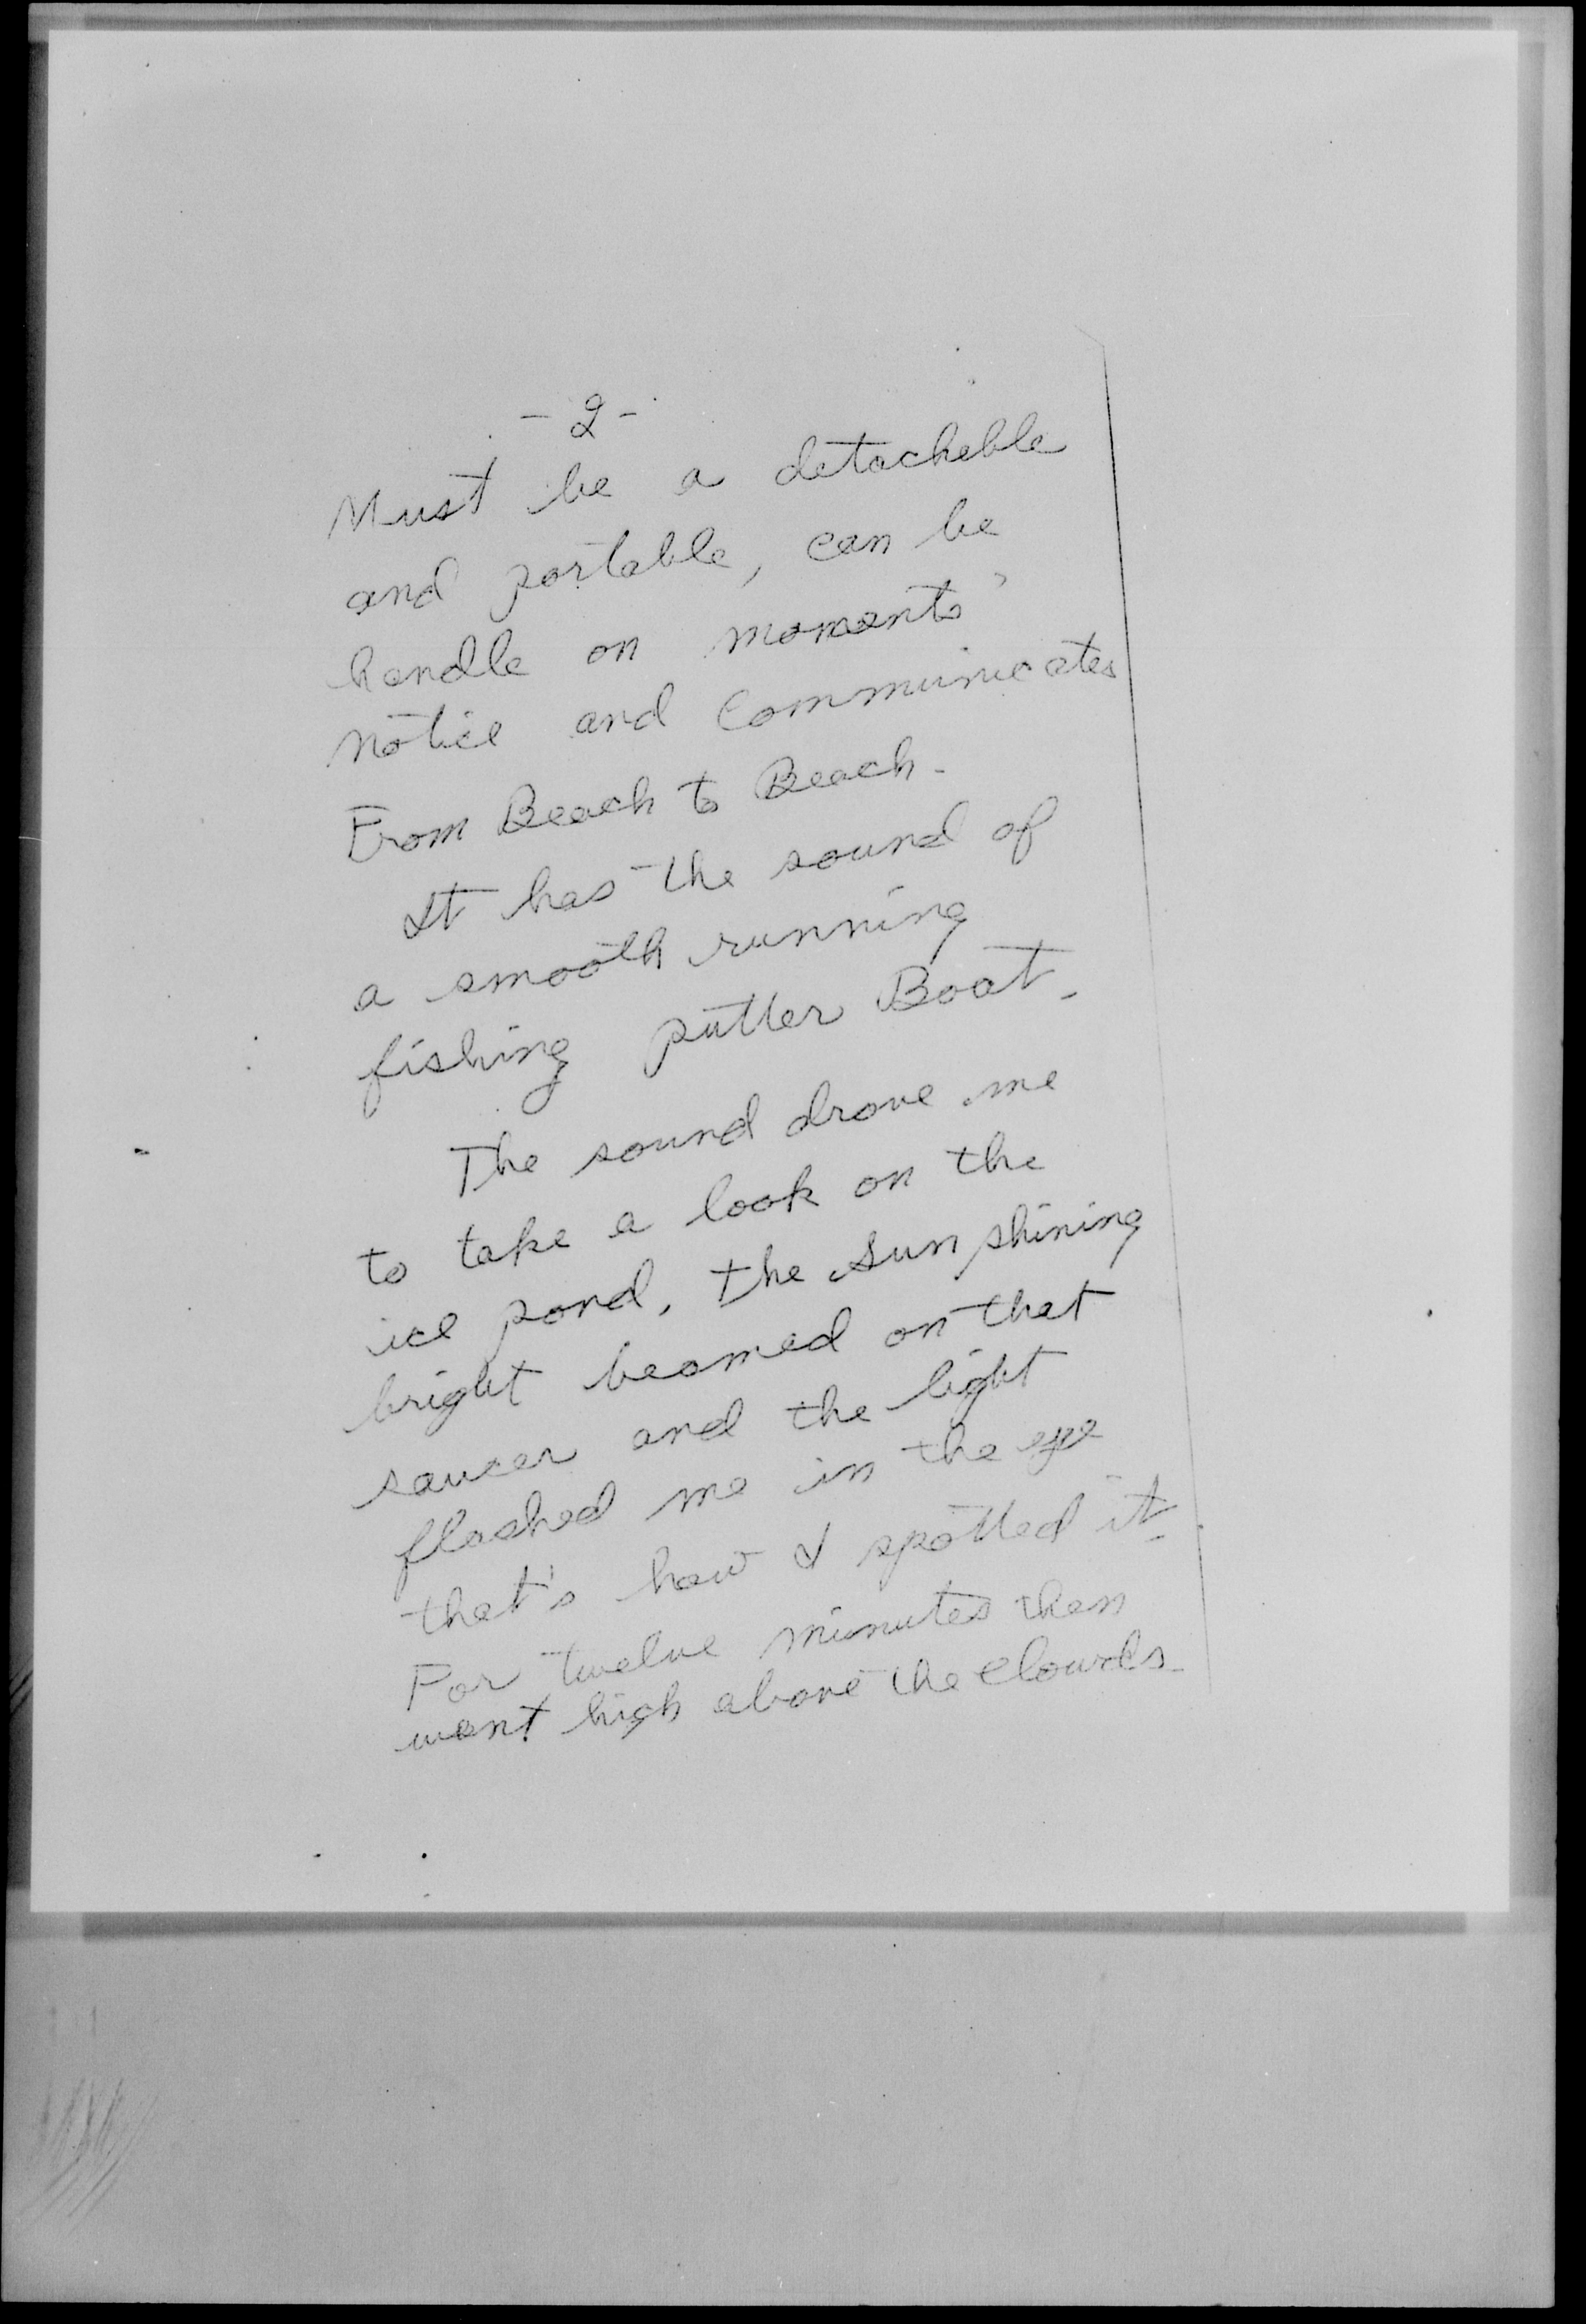 - 2 -
Must be a detacheble
and portable, can be
handle on moments'
notice and Communicates
From Beach to Beach.
It has the sound of
a smooth running
fishing putter Boat.
The sound drove me
to take a look on the
ice pond. the sun shining
bright beamed on that
saucer and the light
flashed me in the eye
that's how I spotted it.
For twelve minutes then
went high above the clouds.